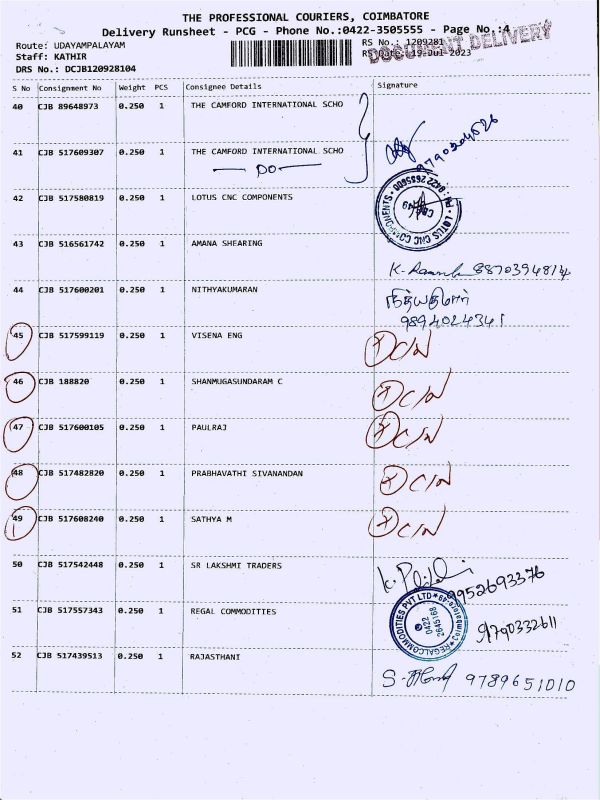 THE PROFESSIONAL COURIERS, COIMBATORE
Delivery Runsheet - PCG - Phone No.:0422-3505555 - Page No.:4
Route: UDAYAMPALAYAM
RS No.: 1209281
DOCUMENT DELIVERY
Staff: KATHIR
RS Date: 19-Jul-2023
DRS No.: DCJB120928104
S No Consignment No Weight PCS Consignee Details Signature
40 CJB 89648973 0.250 1 THE CAMFORD INTERNATIONAL SCHO
41 CJB 517609307 0.250 1 THE CAMFORD INTERNATIONAL SCHO
DO
42 CJB 517580819 0.250 1 LOTUS CNC COMPONENTS
LOTUS CNC COMPONENTS
43 CJB 516561742 0.250 1 AMANA SHEARING
8870394814
44 CJB 517600201 0.250 1 NITHYAKUMARAN
நித்யகுமார்
9894024341
45 CJB 517599119 0.250 1 VISENA ENG C/N
46 CJB 188820 0.250 1 SHANMUGASUNDARAM C C/N
47 CJB 517600105 0.250 1 PAULRAJ C/N
48 CJB 517482820 0.250 1 PRABHAVATHI SIVANANDAN C/N
49 CJB 517608240 0.250 1 SATHYA M C/N
50 CJB 517542448 0.250 1 SR LAKSHMI TRADERS
9952693376
51 CJB 517557343 0.250 1 REGAL COMMODITIES
REGAL COMMODITIES PVT LTD
0422
2645168
9790332611
52 CJB 517439513 0.250 1 RAJASTHANI
9789651010